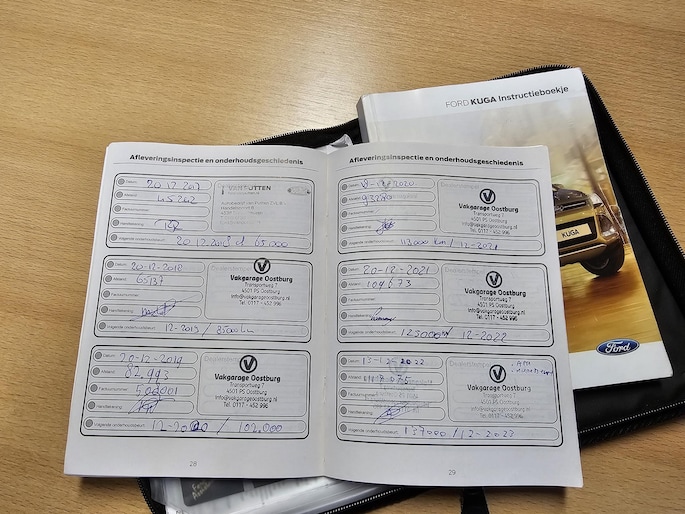 FORD KUGA Instructieboekje
KUGA
Ford
Afleveringsinspectie en onderhoudsgeschiedenis
Datum 20-12-2017
Afstand 45202
Factuurnummer
Handtekening
VAN PUTTEN
Volgende onderhoudsbeurt 20.12.2018 of 65.000
Datum 20-12-2018
Afstand 65137
Factuurnummer
Handtekening
Vakgarage Oostburg
Transportweg 7
4501 PS Oostburg
info@vakgarageoostburg.nl
Tel. 0117 - 452 996
Volgende onderhoudsbeurt 12-2019 / 85000 km
Datum 20-12-2019
Afstand 82.993
Factuurnummer
Handtekening
Vakgarage Oostburg
Transportweg 7
4501 PS Oostburg
info@vakgarageoostburg.nl
Tel. 0117 - 452 996
Volgende onderhoudsbeurt 12-2020 / 102.000
28
Afleveringsinspectie en onderhoudsgeschiedenis
Datum
Afstand 93280
Factuurnummer
Handtekening
Vakgarage Oostburg
Transportweg 7
4501 PS Oostburg
info@vakgarageoostburg.nl
Tel. 0117 - 452 996
Volgende onderhoudsbeurt 113000 km / 12-2021
Datum 20-12-2021
Afstand 109673
Factuurnummer
Handtekening
Vakgarage Oostburg
Transportweg 7
4501 PS Oostburg
info@vakgarageoostburg.nl
Tel. 0117 - 452 996
Volgende onderhoudsbeurt 125000 / 12-2022
Datum
Afstand
Factuurnummer
Handtekening
Vakgarage Oostburg
Transportweg 7
4501 PS Oostburg
info@vakgarageoostburg.nl
Tel. 0117 - 452 996
Volgende onderhoudsbeurt 137000 / 12-2023
29